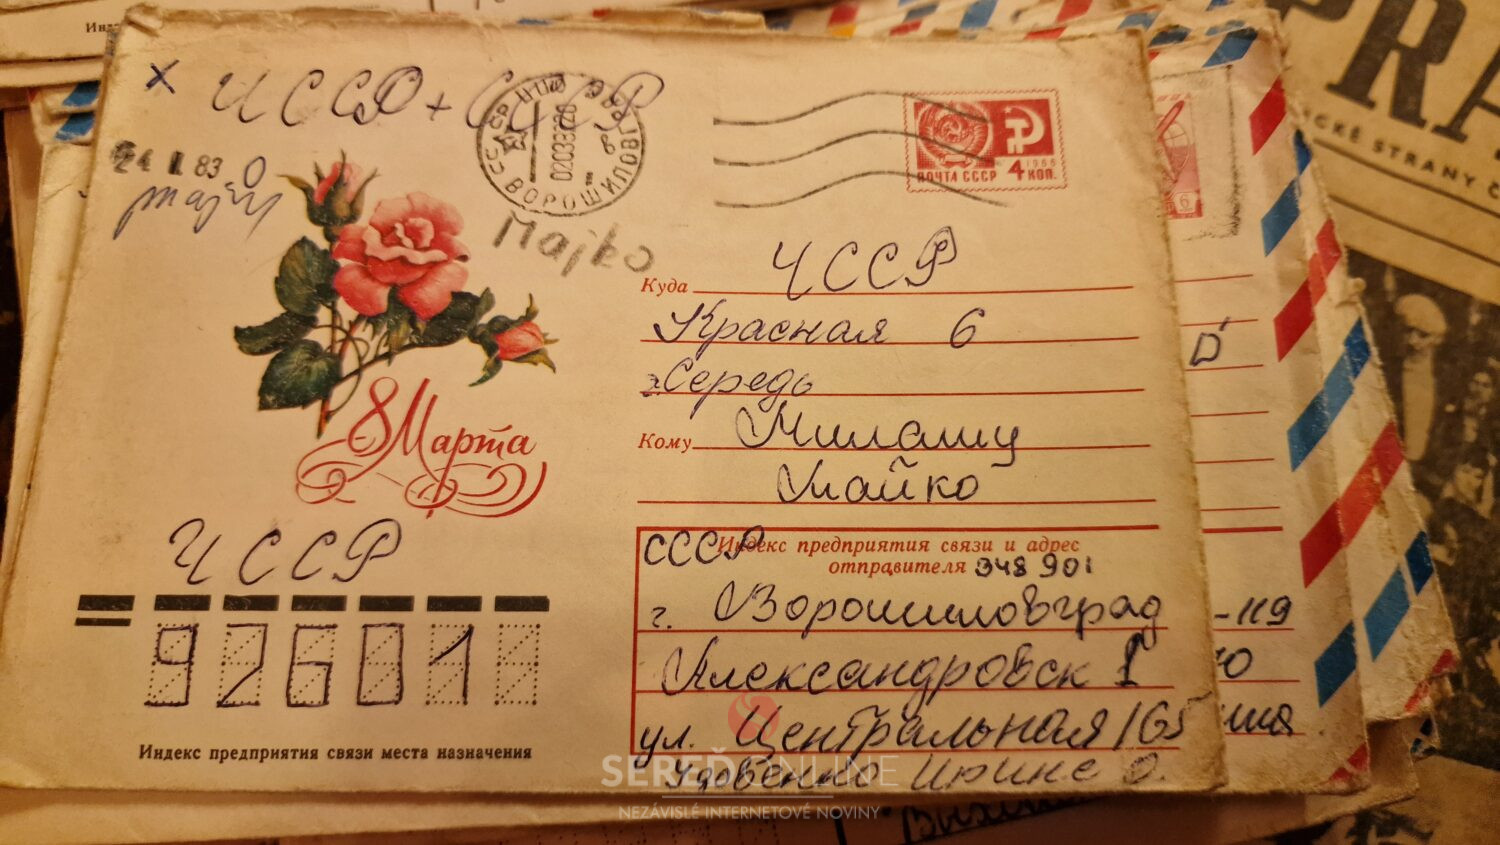 × ЧССР + СССР
24. I. 83
Majko
ПОЧТА СССР 4 КОП.
1966
8 Марта
Куда ЧССР
Красная 6
Середь
Кому Милашу
Майко
ЧССР
92601
Индекс предприятия связи места назначения
СССР Индекс предприятия связи и адрес
отправителя 348901
г. Ворошиловград
Александровск 1
ул. Центральная 165
Удовенко Ирине О.
-119
ю
PRA
ICKÉ STRANY Č
6
Ď
SEREĎ ONLINE
NEZÁVISLÉ INTERNETOVÉ NOVINY